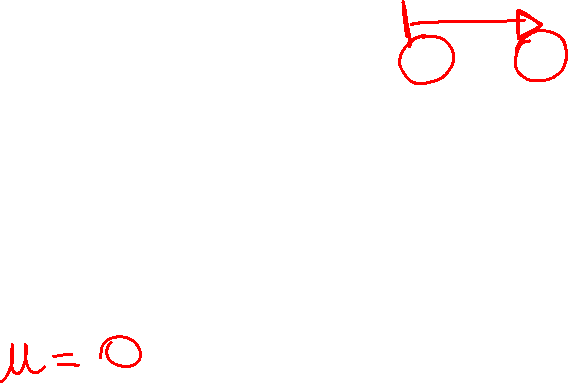 μ = 0